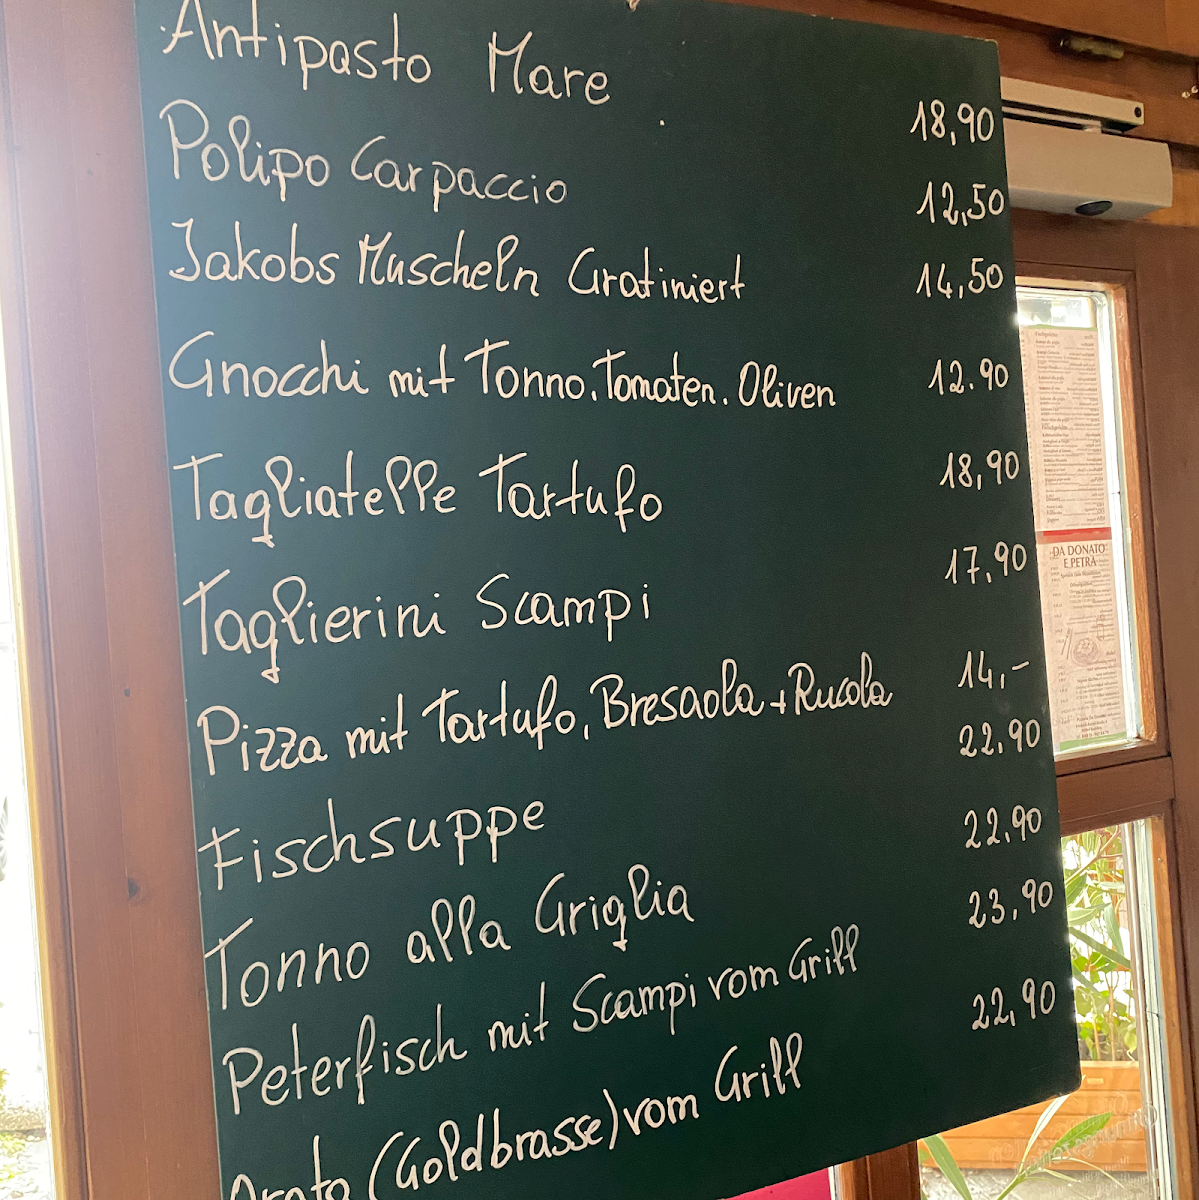 Antipasto Mare 18,90
Polipo Carpaccio 12,50
Jakobs Muscheln Gratiniert 14,50
Gnocchi mit Tonno.Tomaten.Oliven 12.90
Tagliatelle Tartufo 18,90
Taglierini Scampi 17.90
Pizza mit Tartufo, Bresaola + Rucola 14,-
Fischsuppe 22.90
Tonno alla Griglia 22.90
Peterfisch mit Scampi vom Grill 23.90
Orata (Goldbrasse) vom Grill 22,90
DA DONATO
E PETRA